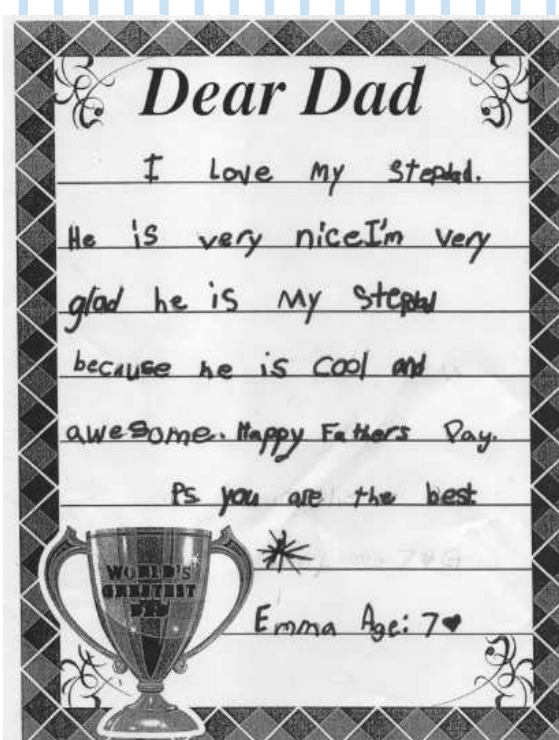 Dear Dad
I Love my Stepdad.
He is very nice I'm very
glad he is my Stepdad
because he is cool and
awesome. Happy Fathers Day.
Ps you are the best
WORLD'S
GREATEST
DAD
Emma Age: 7♥